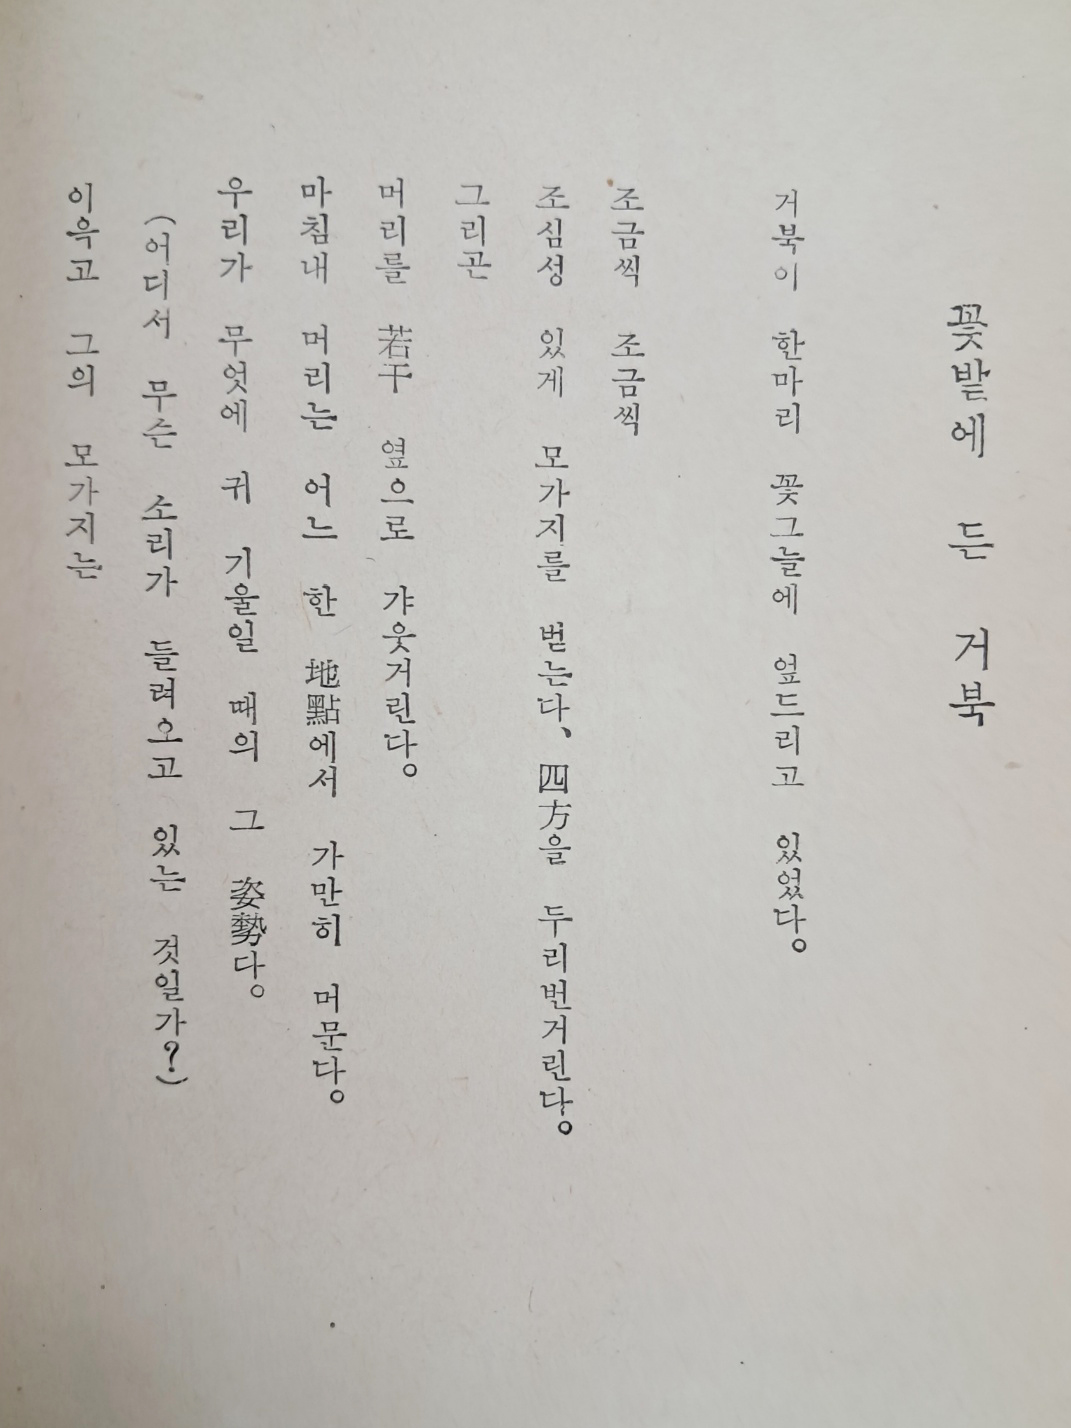 꽃밭에 든 거북
거북이 한마리 꽃그늘에 엎드리고 있었다。
조금씩 조금씩
조심성 있게 모가지를 벋는다、四方을 두리번거린다。
그리곤
머리를 若干 옆으로 갸웃거린다。
마침내 머리는 어느 한 地點에서 가만히 머문다。
우리가 무엇에 귀 기울일 때의 그 姿勢다。
(어디서 무슨 소리가 들려오고 있는 것일가?)
이윽고 그의 모가지는